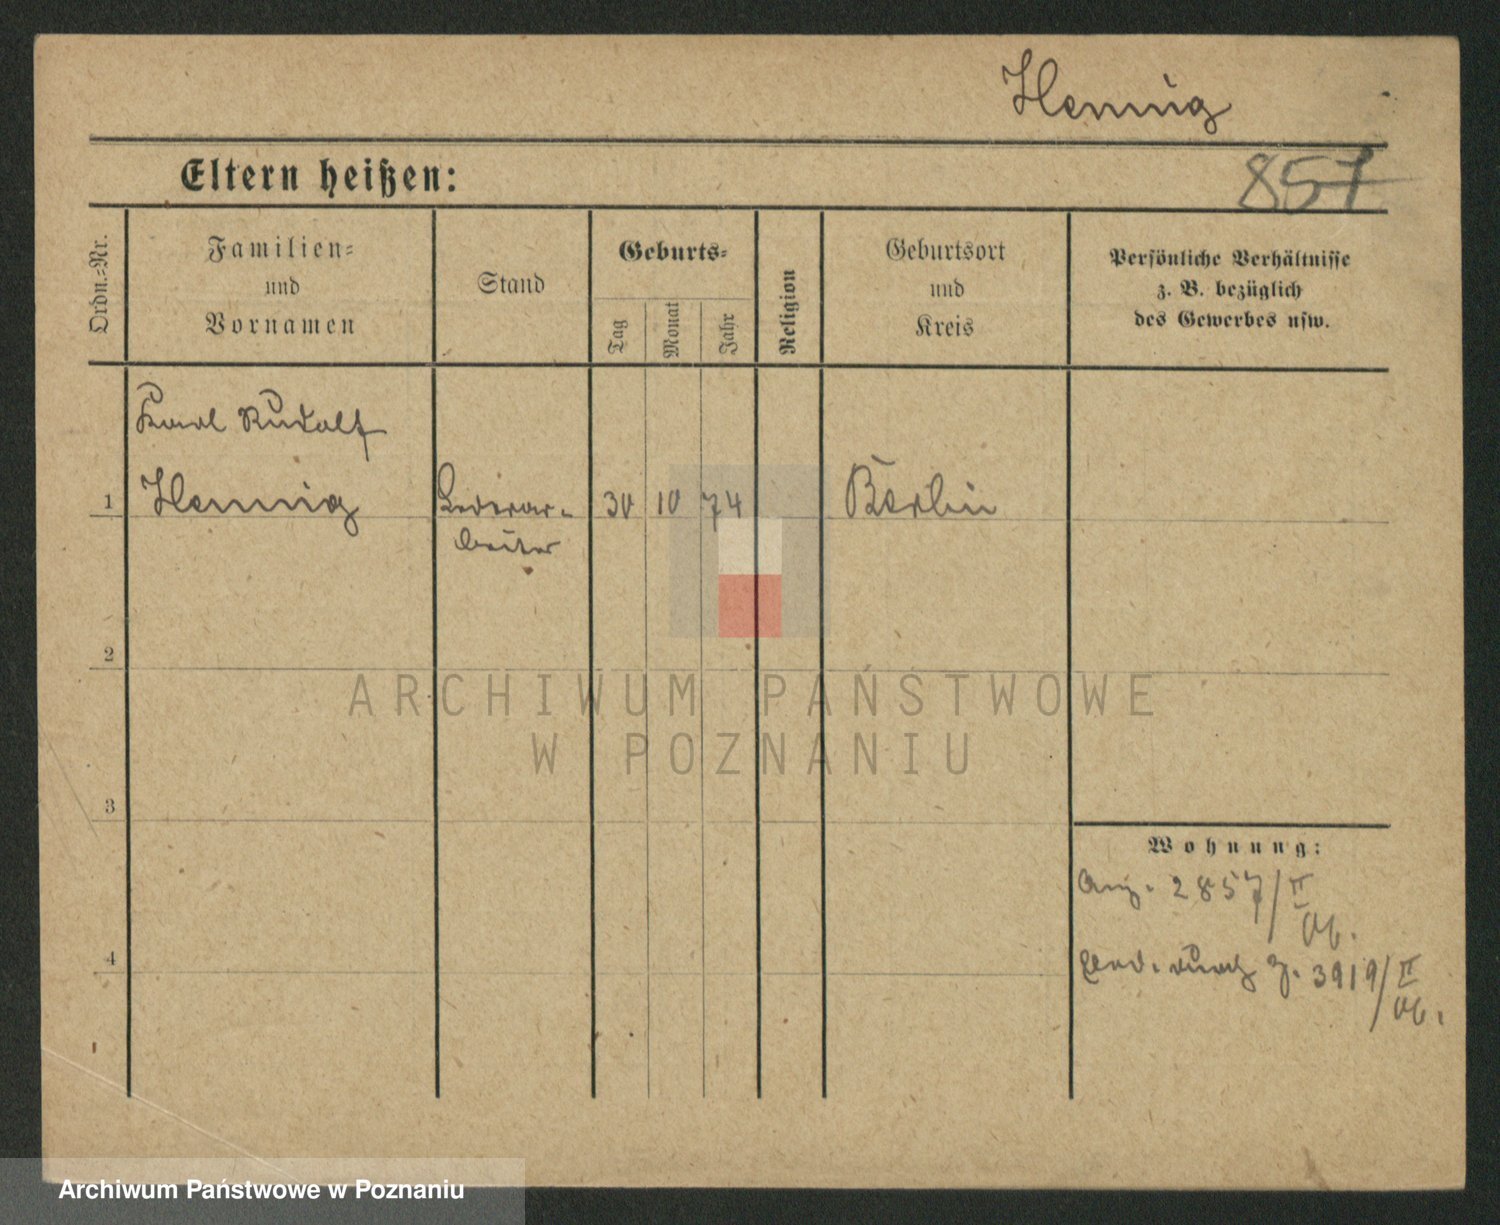 Hennig
Eltern heißen:
857
Ordn.=Nr.
Familien=
und
Vornamen
Stand
Geburts=
Tag
Monat
Jahr
Religion
Geburtsort
und
Kreis
Persönliche Verhältnisse
z. B. bezüglich
des Gewerbes usw.
Karl Rudolf
1 Hennig Lederar- 30 10 74 Berlin
beiter
2
ARCHIWUM PAŃSTWOWE
W POZNANIU
3
Wohnung:
Ang. 2857/II
06.
4
Erl. durch J. 3919/II
06.
Archiwum Państwowe w Poznaniu